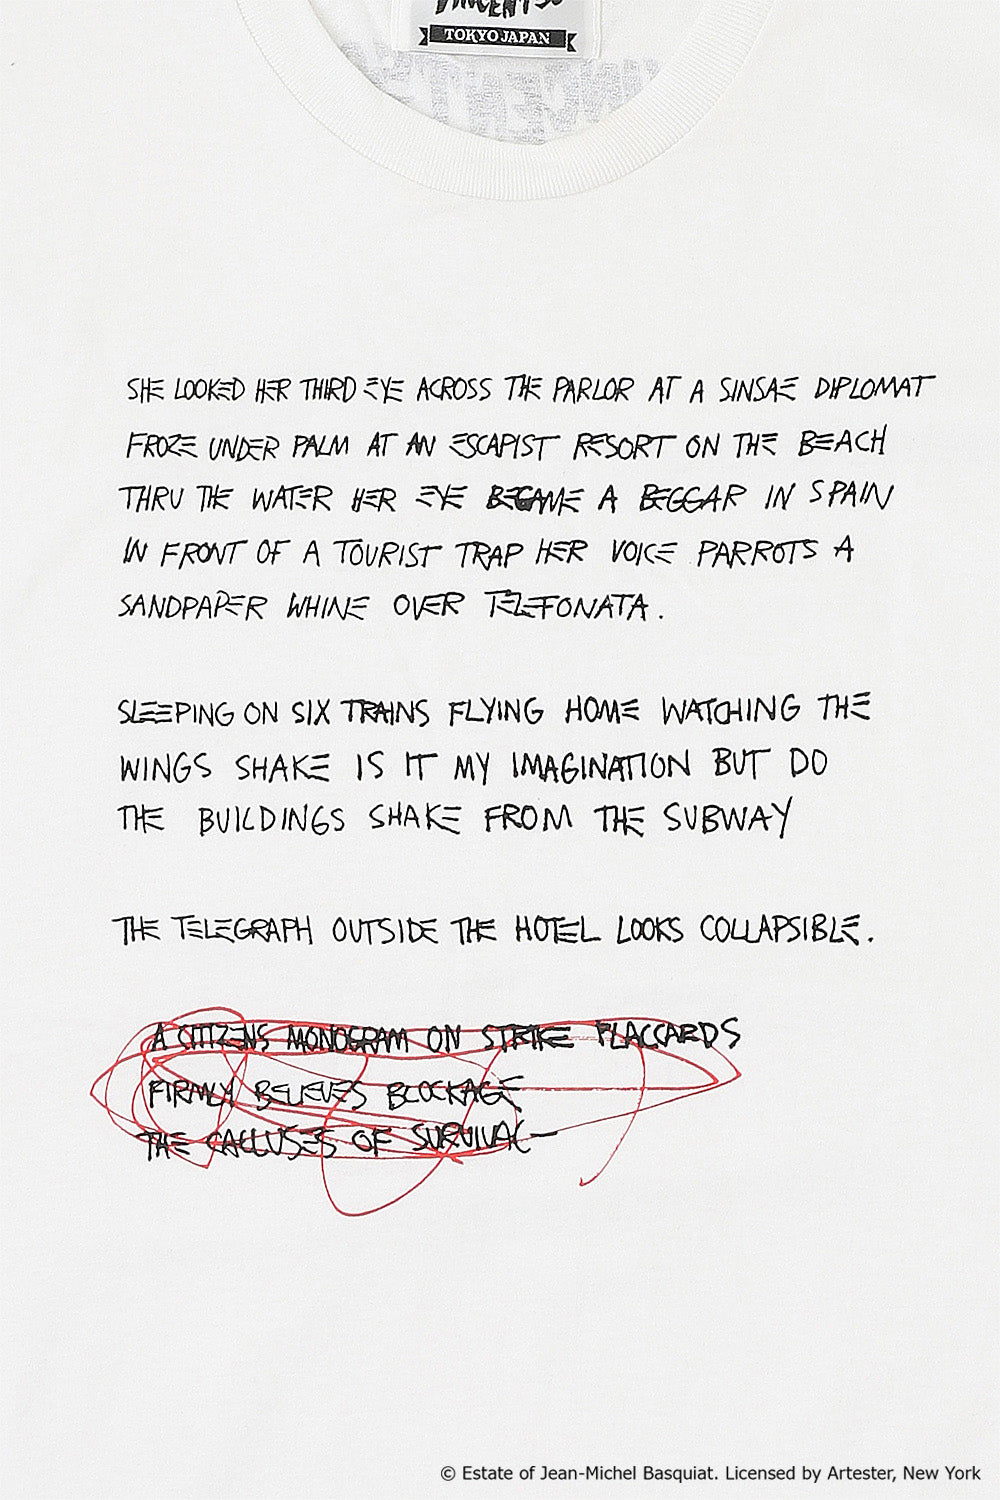 TOKYO JAPAN
SHE LOOKED HER THIRD EYE ACROSS THE PARLOR AT A SINSAE DIPLOMAT
FROZE UNDER PALM AT AN ESCAPIST RESORT ON THE BEACH
THRU THE WATER HER EYE BECAME A BEGGAR IN SPAIN
IN FRONT OF A TOURIST TRAP HER VOICE PARROTS A
SANDPAPER WHINE OVER TELEFONATA.
SLEEPING ON SIX TRAINS FLYING HOME WATCHING THE
WINGS SHAKE IS IT MY IMAGINATION BUT DO
THE BUILDINGS SHAKE FROM THE SUBWAY
THE TELEGRAPH OUTSIDE THE HOTEL LOOKS COLLAPSIBLE.
A CITIZENS MONOGRAM ON STRIKE PLACCARDS
FIRMLY BELIEVES BLOCKAGE
THE CALLUSES OF SURVIVAL—
© Estate of Jean-Michel Basquiat. Licensed by Artester, New York